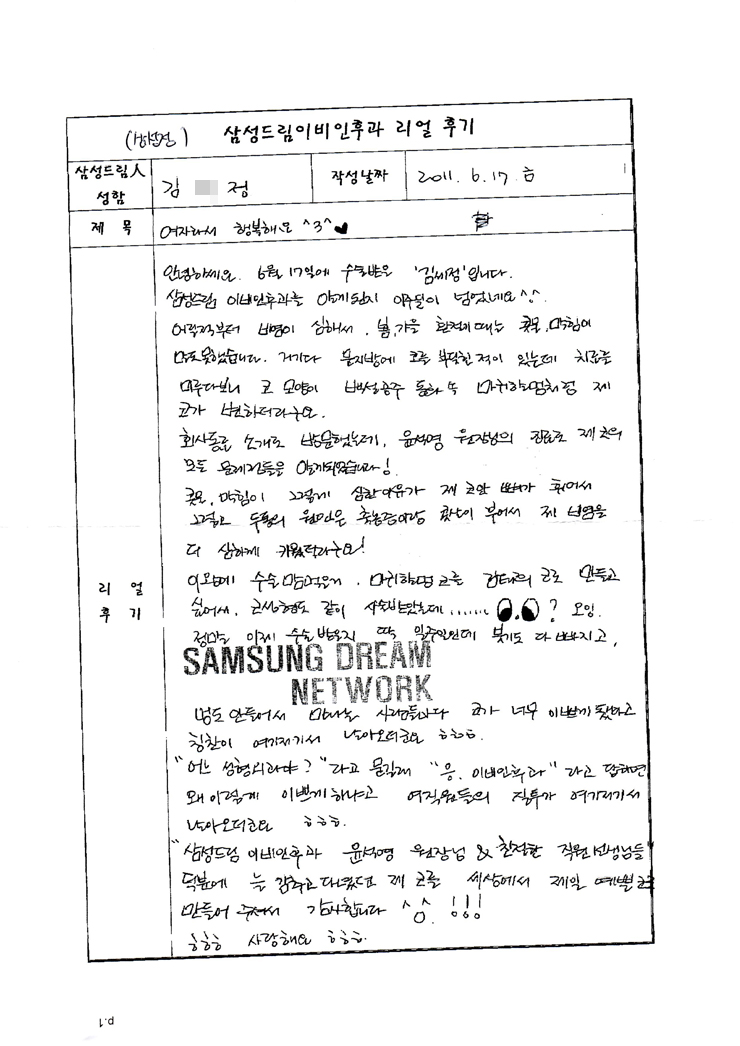 삼성드림이비인후과 리얼 후기
삼성드림人 성함
김 정
작성날짜
2011. 6. 17 금
제 목
여자라서 행복해요 ^3^♥
리 얼
후 기
안녕하세요. 6월 17일에 수술받은 '김세정'입니다.
삼성드림 이비인후과를 알게된지 이주일이 넘었네요^^.
어릴적부터 비염이 심해서, 봄,가을 환절기 때는 콧물,막힘이
말도못했습니다. 거기다 문지방에 코를 부딪힌적이 있는데 치료를
미루다보니 코 모양이 백설공주 동화 속 마귀할멈처럼 제
코가 변하더라구요.
회사동료 소개로 방문했는데, 윤석영 원장님의 진료로 제 코의
모든 문제점들을 알게되었습니다!
콧물,막힘이 그렇게 심한이유가 제 코안 뼈가 휘어서
그렇고 두통의 원인은 축농증이랑 살이 부어서 제 비염을
더 심하게 키웠더라구요!
이왕에 수술 맘먹은거, 마귀할멈 코를 코로 만들고
싶어서, 코성형도 같이 수술받았는데 ...... ? 오잉.
정말 이제 수술 받은지 딱 일주일인데 붓기도 다 빠지고,
SAMSUNG DREAM
NETWORK
멍도 안들어서 만나는 사람들마다 코가 너무 이쁘게 됐다고
칭찬이 여기저기서 날아오더군요 ㅎㅎㅎ.
"어느 성형외과야?"라고 물길래 "응, 이비인후과"라고 답하면
왜이렇게 이쁘게하냐고 여직원들의 질투가 여기저기서
날아오더군요 ㅎㅎㅎ.
"삼성드림 이비인후과 윤석영 원장님 & 친절한 직원선생님들"
덕분에 늘 감추고 다녔던 제 코를 세상에서 제일 예쁜 코로
만들어 주셔서 감사합니다 ^^ !!!
ㅎㅎㅎ 사랑해요 ㅎㅎㅎ.
p.1